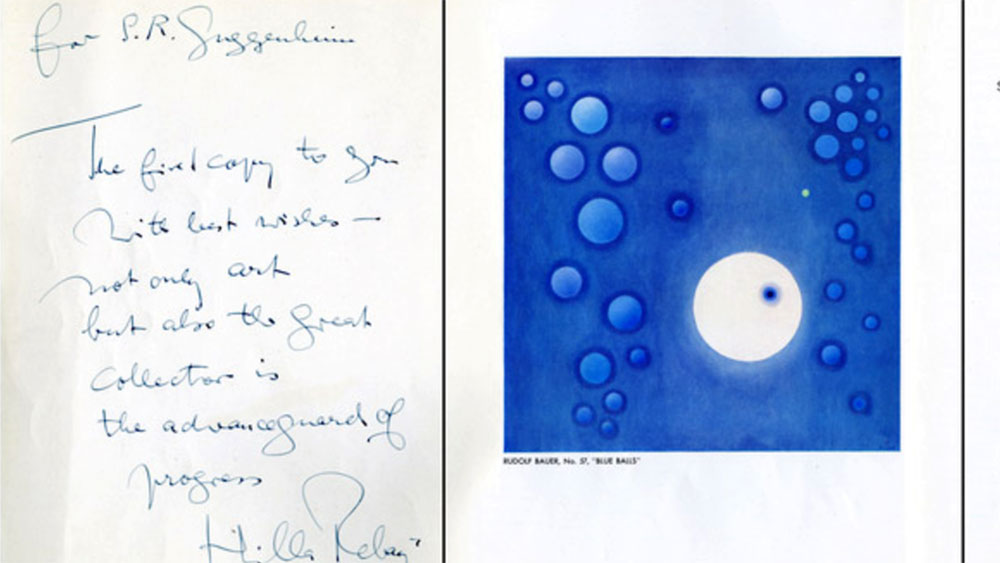 for S.R. Guggenheim
The first copy to you
with best wishes —
not only art
but also the great
collector is
the advanceguard of
progress
Hilla Rebay
RUDOLF BAUER, No. 57, "BLUE BALLS"